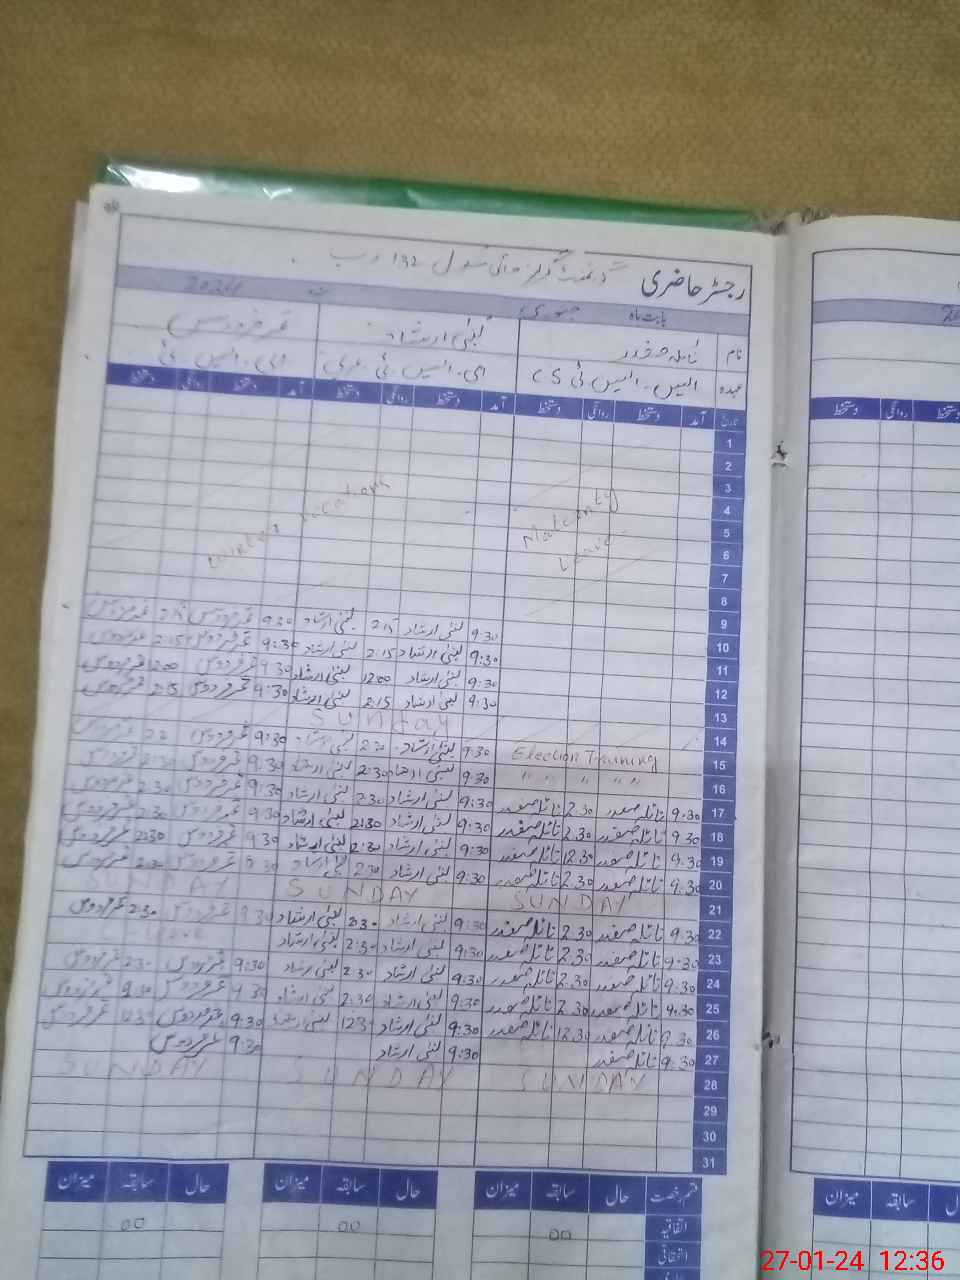 رجسٹر حاضری گورنمنٹ گرلز ہائی سکول 132 ر ب
بابت ماہ جنوری 2024
نام نائلہ صفدر لبنیٰ ارشاد قمر فردوس
عہدہ ایس۔ایس ٹی CS ای۔ایس۔ٹی عربی ای۔ایس۔ٹی
تاریخ آمد دستخط روانگی دستخط آمد دستخط روانگی دستخط آمد دستخط روانگی دستخط
1
2
3
4
5
6
7
8
Maternity
Leave
winter vacations
9 9:30 لبنیٰ ارشاد 2:15 لبنیٰ ارشاد 9:30 قمر فردوس 2:15 قمر فردوس
10 9:30 لبنیٰ ارشاد 2:15 لبنیٰ ارشاد 9:30 قمر فردوس 2:15 قمر فردوس
11 9:30 لبنیٰ ارشاد 1200 لبنیٰ ارشاد 9:30 قمر فردوس 1200 قمر فردوس
12 9:30 لبنیٰ ارشاد 2:15 لبنیٰ ارشاد 9:30 قمر فردوس 2:15 قمر فردوس
13
14 SUNDAY
15 Election Training 9:30 لبنیٰ ارشاد لبنیٰ ارشاد 9:30 قمر فردوس قمر فردوس
16 " " " " " 9:30 لبنیٰ ارشاد 2:30 لبنیٰ ارشاد 9:30 قمر فردوس 2:30 قمر فردوس
17 9:30 نائلہ صفدر 2.30 نائلہ صفدر 9:30 لبنیٰ ارشاد 2:30 لبنیٰ ارشاد 9:30 قمر فردوس 2:30 قمر فردوس
18 9:30 نائلہ صفدر 2.30 نائلہ صفدر 9:30 لبنیٰ ارشاد 2:30 لبنیٰ ارشاد 9:30 قمر فردوس 2:30 قمر فردوس
19 9:30 نائلہ صفدر 12.30 نائلہ صفدر 9:30 لبنیٰ ارشاد لبنیٰ ارشاد 9:30 قمر فردوس قمر فردوس
20 9:30 نائلہ صفدر 2.30 نائلہ صفدر 9:30 لبنیٰ ارشاد 2:30 لبنیٰ ارشاد 9:30 قمر فردوس 2:30 قمر فردوس
21 SUNDAY SUNDAY SUNDAY
22 9:30 نائلہ صفدر 2.30 نائلہ صفدر 9:30 لبنیٰ ارشاد 2:30 لبنیٰ ارشاد 9:30 قمر فردوس 2:30 قمر فردوس
23 9:30 نائلہ صفدر 2.30 نائلہ صفدر 9:30 لبنیٰ ارشاد 2:30 لبنیٰ ارشاد
24 9:30 نائلہ صفدر 2.30 نائلہ صفدر 9:30 لبنیٰ ارشاد 2:30 لبنیٰ ارشاد 9:30 قمر فردوس 2:30 قمر فردوس
25 9:30 نائلہ صفدر 2.30 نائلہ صفدر 9:30 لبنیٰ ارشاد 2:30 لبنیٰ ارشاد 9:30 قمر فردوس قمر فردوس
26 9:30 نائلہ صفدر 12.30 نائلہ صفدر 9:30 لبنیٰ ارشاد لبنیٰ ارشاد 9:30 قمر فردوس قمر فردوس
27 9:30 نائلہ صفدر 9:30 لبنیٰ ارشاد 9:30 قمر فردوس
28 SUNDAY SUNDAY SUNDAY
29
30
31
قسم رخصت حال سابقہ میزان حال سابقہ میزان حال سابقہ میزان
اتفاقیہ 00 00 00
دستخط روانگی دستخط
سابقہ میزان
27-01-24 12:36